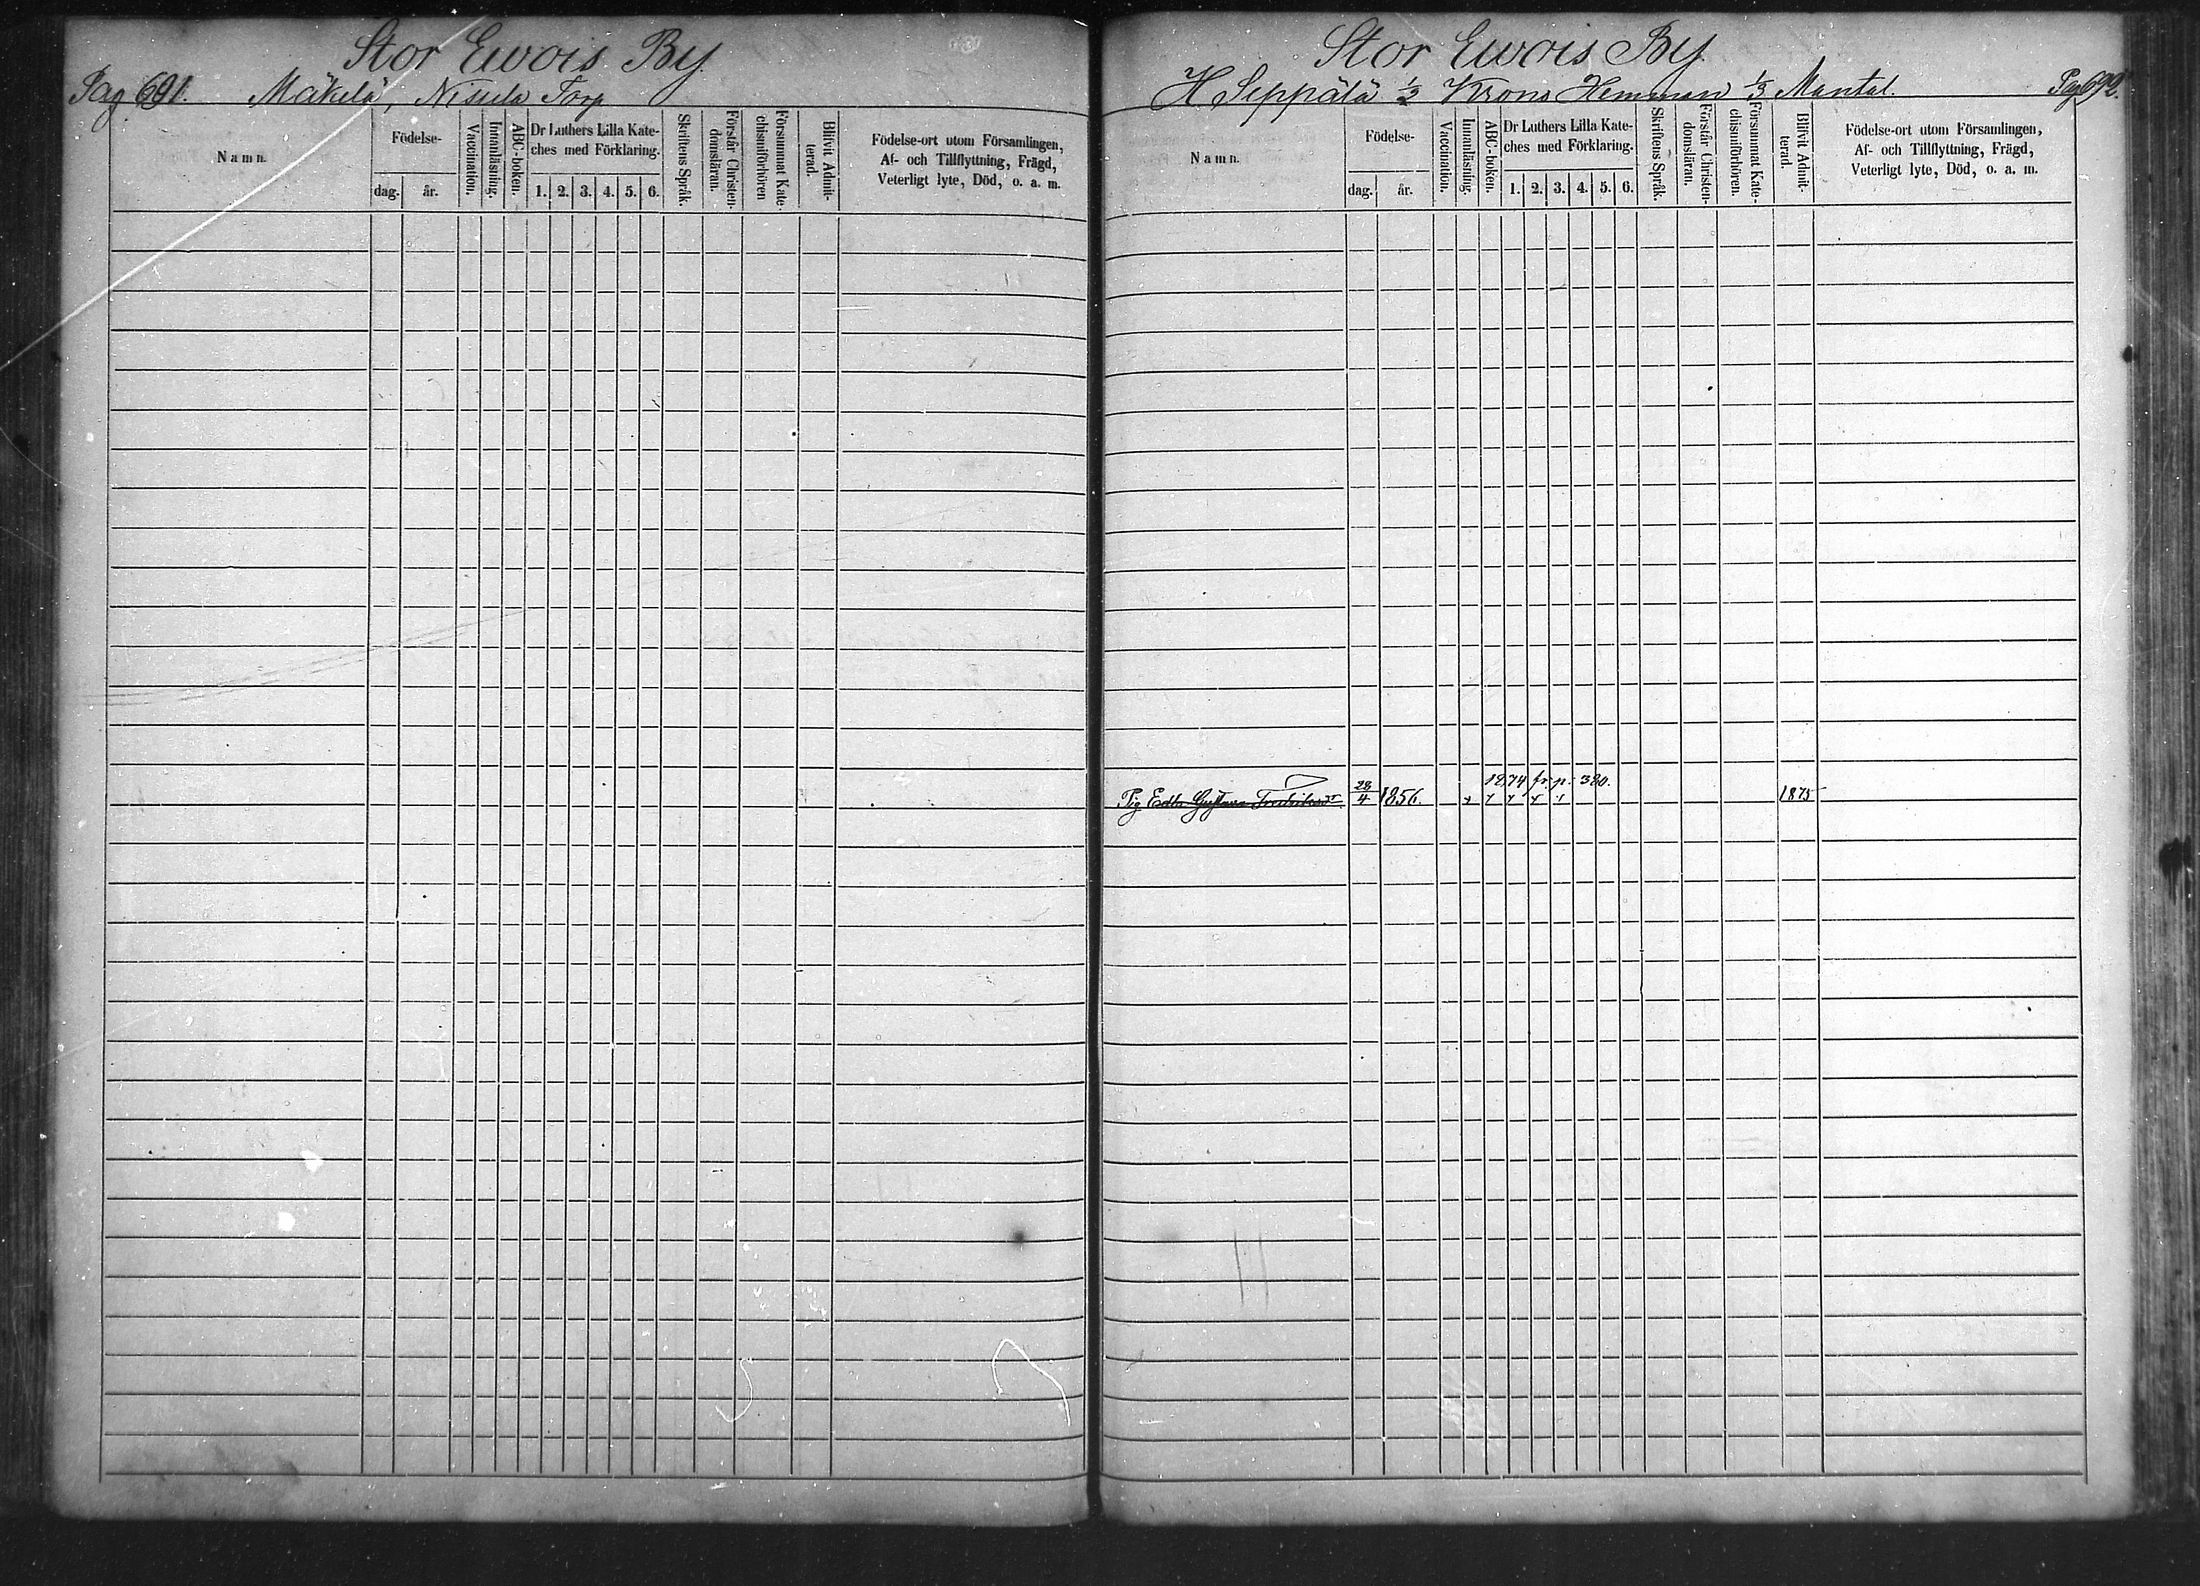 Stor Ewois By.
Pag. 691. Mäkelä, Nissela Torp
Namn.
Födelse-
dag. år.
Vaccination.
Innanläsning.
ABC-boken.
Dr Luthers Lilla Kate-
ches med Förklaring.
1. 2. 3. 4. 5. 6.
Skriftens Språk.
Förstår Christen-
domsläran.
Försummat Kate-
chismiförhören
Blifvit Admit-
terad.
Födelse-ort utom Församlingen,
Af- och Tillflyttning, Frägd,
Veterligt lyte, Död, o. a. m.
Stor Ewois By.
H Seppälä ½ Krono Hemman ⅓ Mantal. Pag. 692.
Namn.
Födelse-
dag. år.
Vaccination.
Innanläsning.
ABC-boken.
Dr Luthers Lilla Kate-
ches med Förklaring.
1. 2. 3. 4. 5. 6.
Skriftens Språk.
Förstår Christen-
domsläran.
Försummat Kate-
chismiförhören.
Blifvit Admit-
terad.
Födelse-ort utom Församlingen,
Af- och Tillflyttning, Frägd,
Veterligt lyte, Död, o. a. m.
1874 fr. p. 380.
Pig Edla Gustava Fredriksdr 28/4 1856. 1875